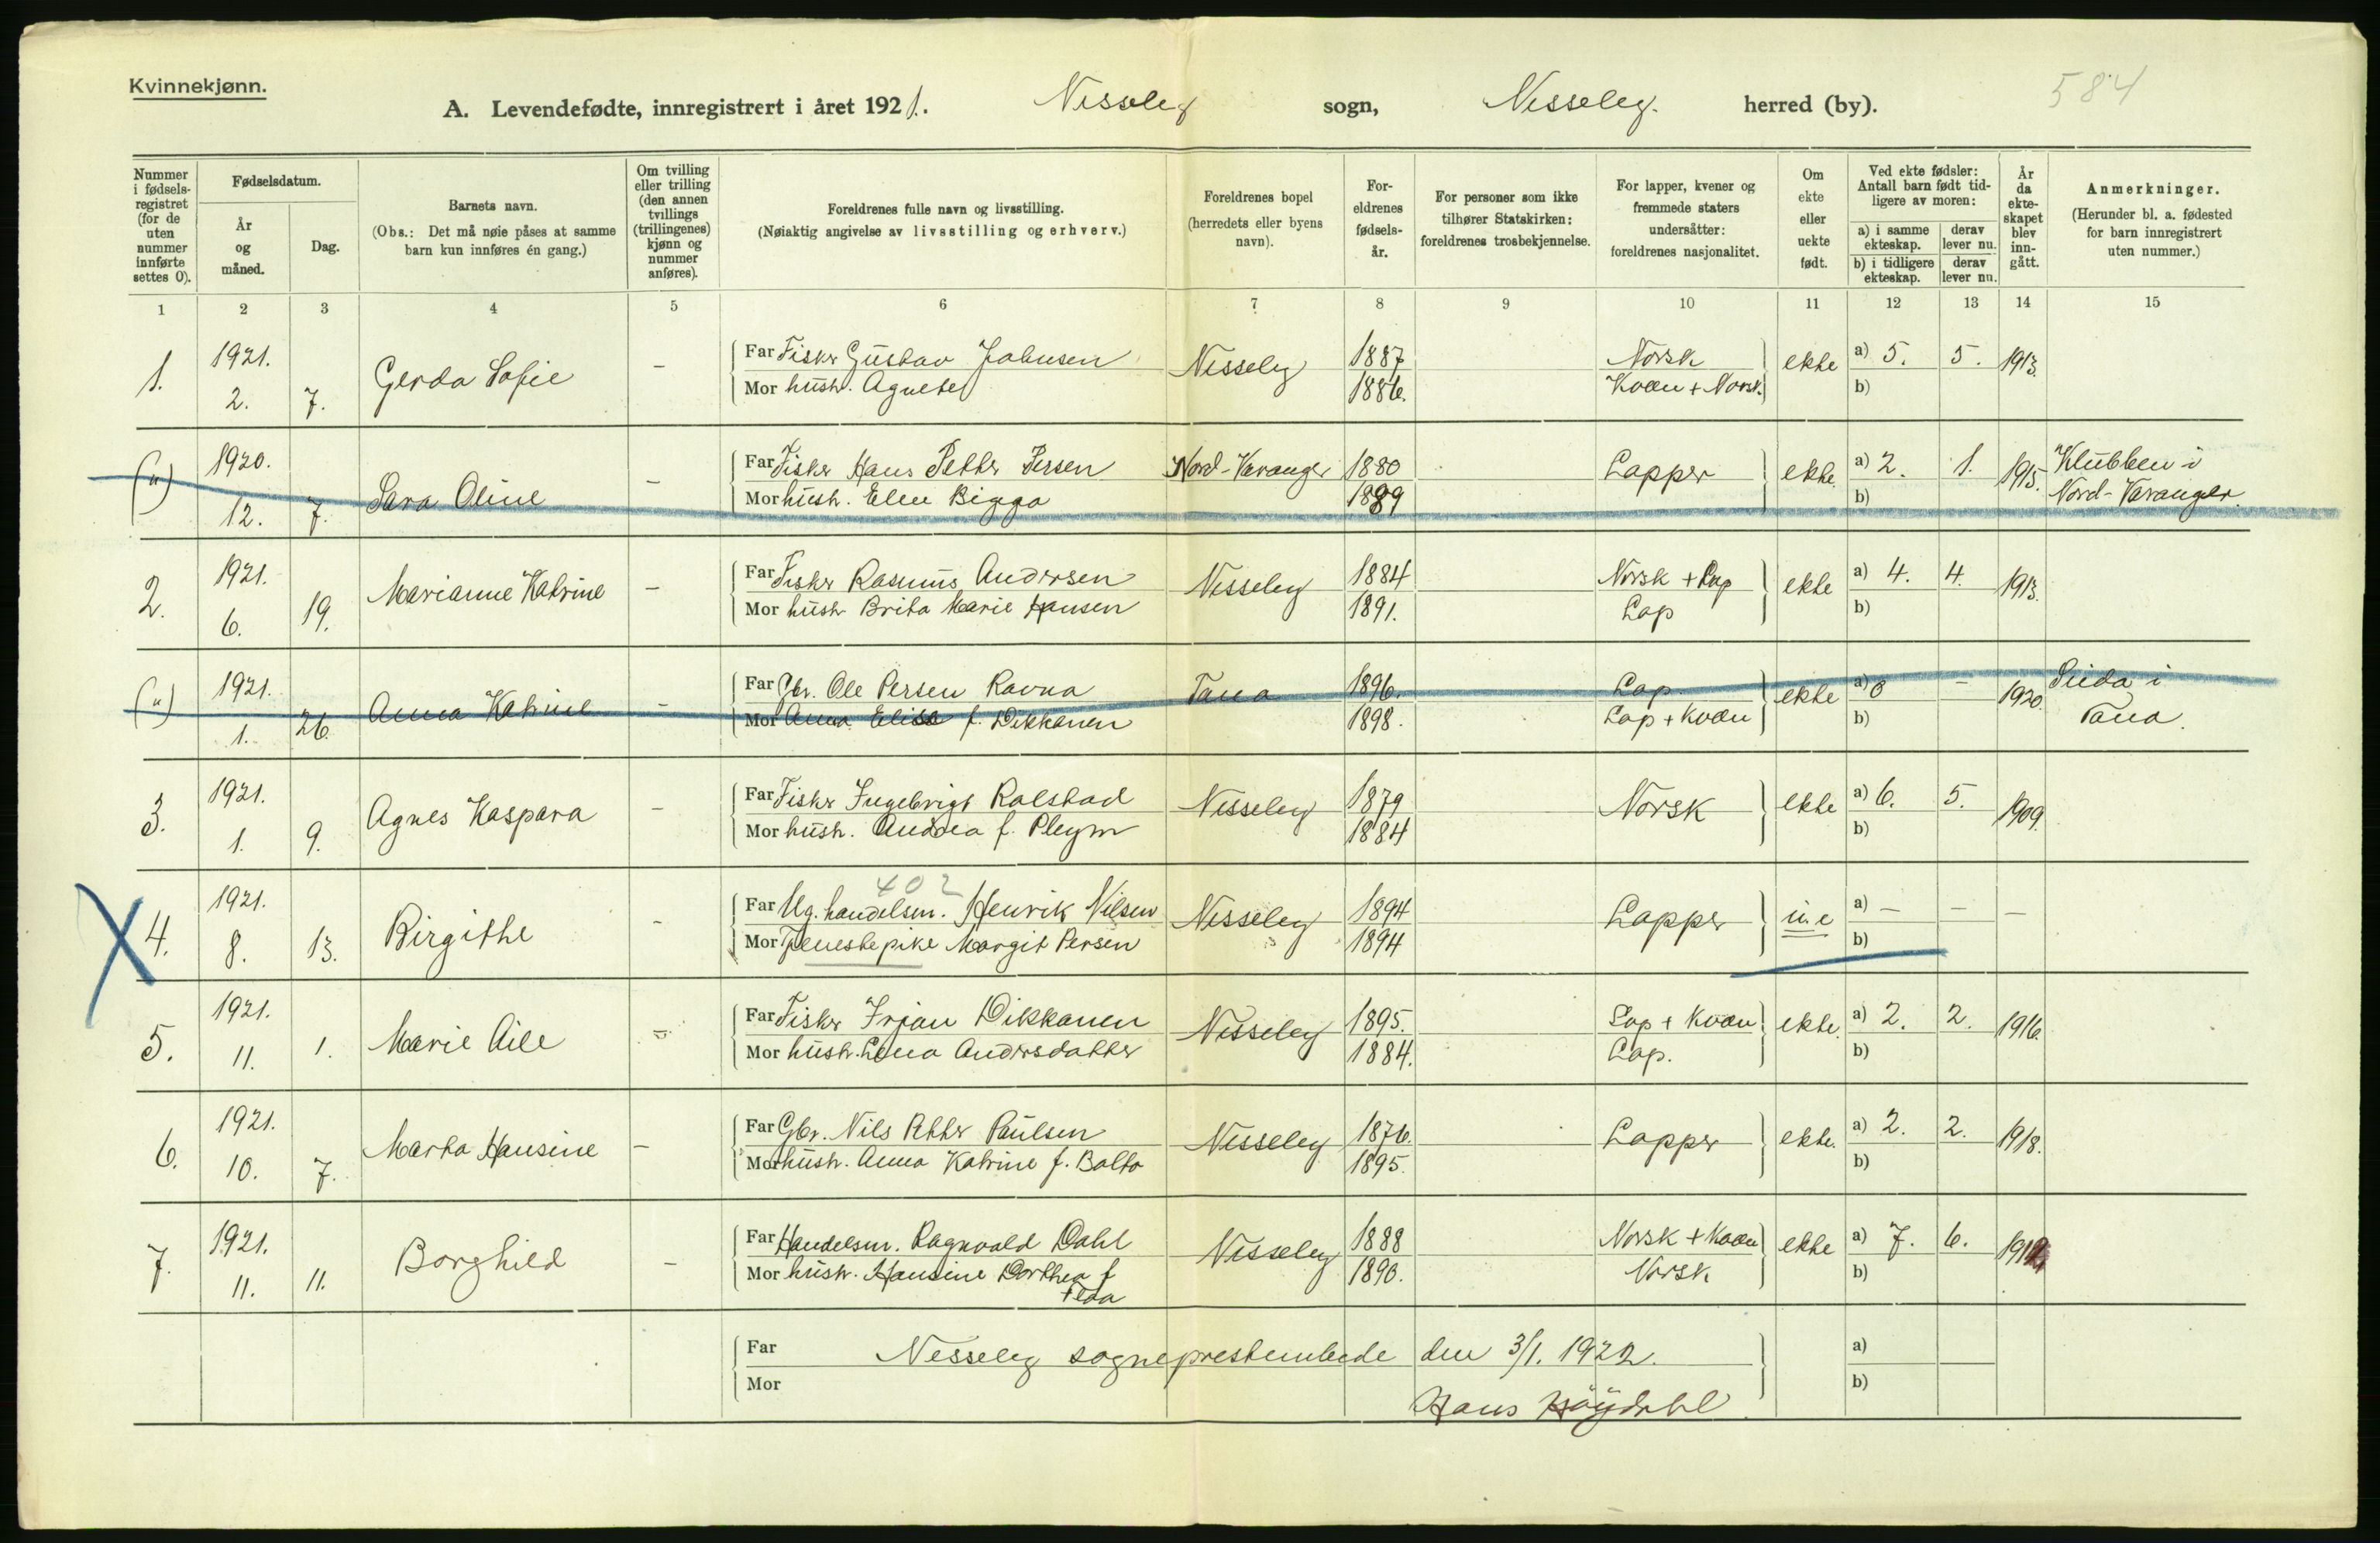 Kvinnekjønn.
584
A. Levendefødte, innregistrert i året 1921. Nesseby sogn, Nesseby. herred (by).
Nummer i fødsels-registret (for de uten nummer innførte settes 0).
Fødselsdatum.
År og måned.
Dag.
Barnets navn.
(Obs.: Det må nøie påses at samme barn kun innføres én gang.)
Om tvilling eller trilling (den annen tvillings (trillingenes) kjønn og nummer anføres).
Foreldrenes fulle navn og livsstilling.
(Nøiaktig angivelse av livsstilling og erhverv.)
Foreldrenes bopel (herredets eller byens navn).
For-eldrenes fødsels-år.
For personer som ikke tilhører Statskirken: foreldrenes trosbekjennelse.
For lapper, kvener og fremmede staters undersåtter: foreldrenes nasjonalitet.
Om ekte eller uekte født.
Ved ekte fødsler: Antall barn født tid-ligere av moren:
a) i samme ekteskap. derav lever nu.
b) i tidligere ekteskap. derav lever nu.
År da ekte-skapet blev inn-gått.
Anmerkninger.
(Herunder bl. a. fødested for barn innregistrert uten nummer.)
1 2 3 4 5 6 7 8 9 10 11 12 13 14 15
1. 1921. 2. 7. Gerda Sofie – Far Fisker Gustav Johnsen Nesseby 1887 Norsk ekte a) 5. 5. 1913.
Mor hustr. Agnete 1886. Kvæn + Norsk. b)
(u) 1920. 12. 7. Sara Oline – Far Fisker Hans Petter Persen Nord-Varanger 1880 Lapper ekte. a) 2. 1. 1915. Klubben i
Mor hustr. Elen Bigga 1889 b) Nord-Varanger.
2. 1921. 6. 19. Marianne Katrine – Far Fisker Rasmus Andersen Nesseby 1884 Norsk + Lap ekte a) 4. 4. 1913.
Mor hustr Brita Marie Hansen 1891. Lap b)
(u) 1921. 1. 26. Anna Katrine – Far Gbr. Ole Persen Ravna Tana 1896. Lap. ekte a) 0 – 1920. Seida i
Mor Anna Elisa f. Dikkanen 1898. Lap + Kvæn b) Tana.
3. 1921. 1. 9. Agnes Kaspara – Far Fisker Ingebrigt Rolstad Nesseby 1879 Norsk ekte a) 6. 5. 1909.
Mor hustr. Andrea f. Pleym 1884 b)
402
4. 1921. 8. 13. Birgithe – Far Ug. handelsm. Henrik Nilsen Nesseby 1894 Lapper u.e a) – – –
Mor Tjenestepike Margit Persen 1894 b)
5. 1921. 11. 1. Marie Aile – Far Fisker Irjan Dikkanen Nesseby 1895. Lap + Kvæn ekte. a) 2. 2. 1916.
Mor hustr. Lena Andersdatter 1884. Lap. b)
6. 1921. 10. 7. Marta Hansine – Far Gbr. Nils Petter Paulsen Nesseby 1876. Lapper ekte. a) 2. 2. 1918.
Mor hustr. Anna Katrine f. Balto 1895. b)
7. 1921. 11. 11. Borghild – Far Handelsm. Ragnvald Dahl Nesseby 1888 Norsk + Kvæn ekte a) 7. 6. 1912
Mor hustr. Hansine Dorthea f 1890. Norsk b)
Far Nesseby sogneprestembede den 3/1. 1922. a)
Mor b)
Hans Høydahl